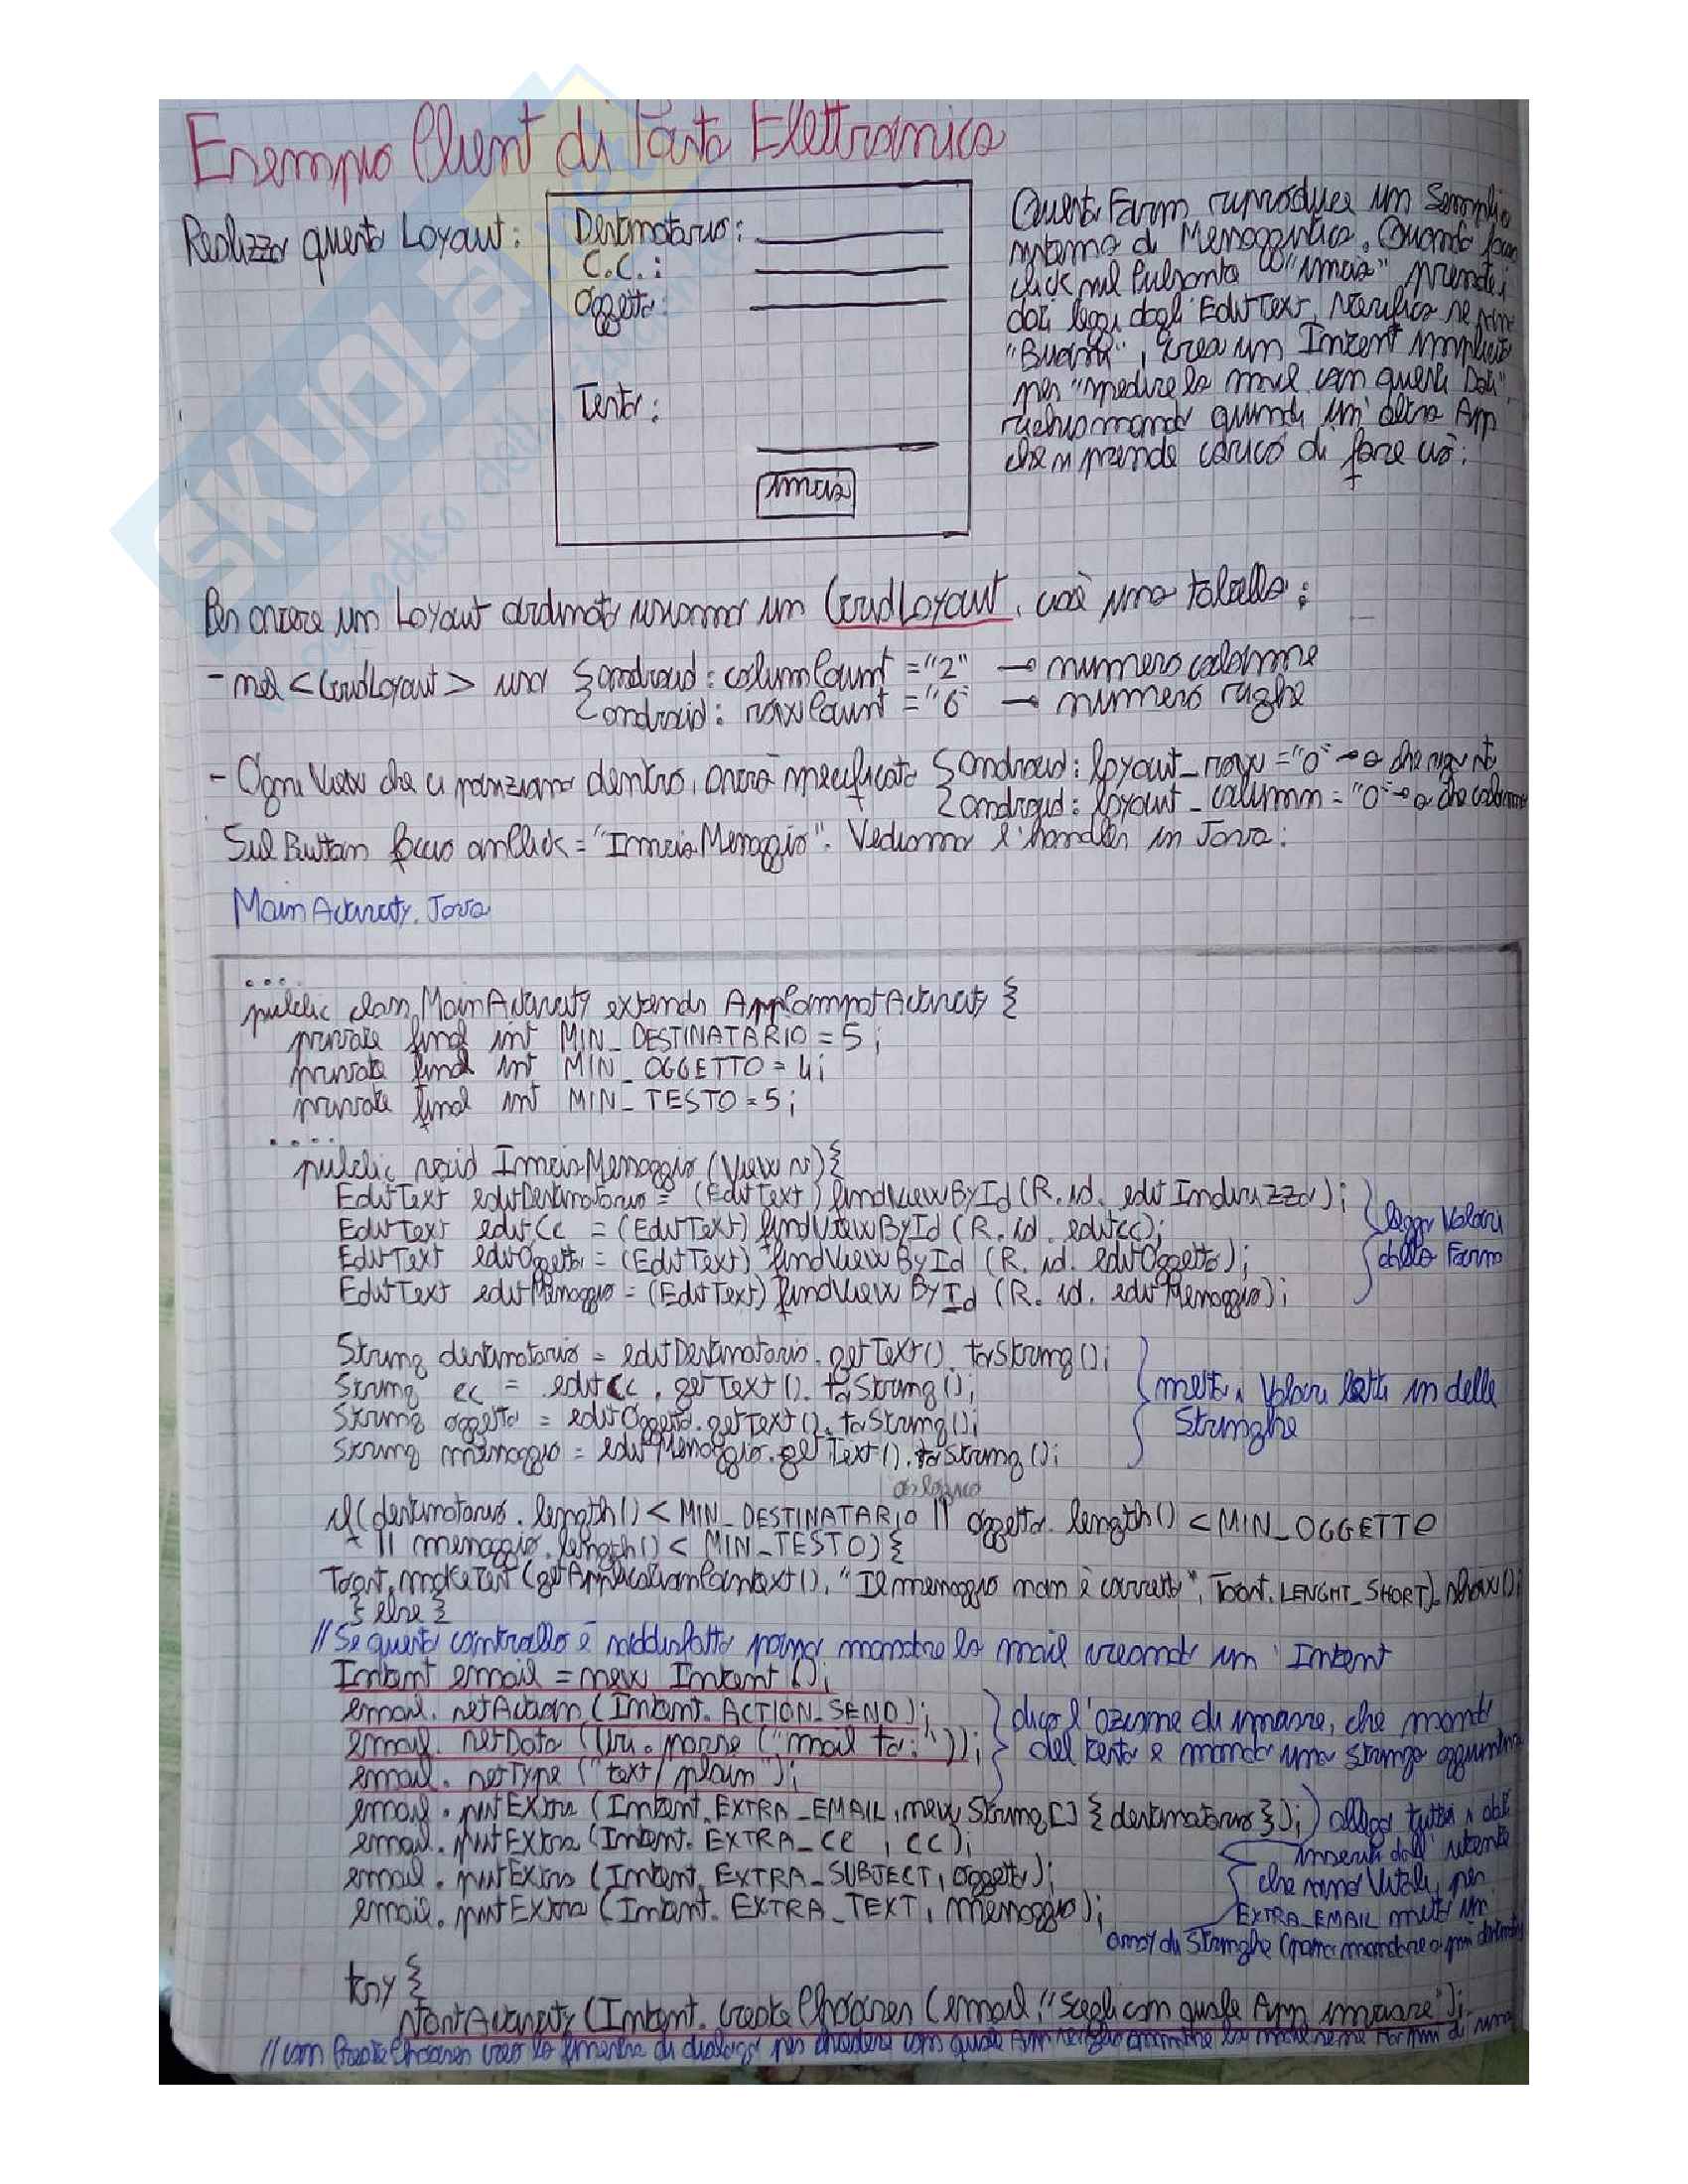 Esempio Client di Posta Elettronica
Realizzo questo Layout:
Destinatario:
C.C.:
Oggetto:
Testo:
invia
Questo Form riproduce un Semplice
sistema di Messaggistica. Quando faccio
click sul Pulsante "invia" prende i
dati leggi dagli EditText, verifica se sono
"Buoni", crea un Intent implicito
per "spedire la mail con questi Dati",
richiamando quindi un'altra App
che si prende carico di fare ciò:
Per avere un Layout ordinato usiamo un GridLayout, cioè una tabella:
- nel <GridLayout> uso { android:columnCount = "2" → numero colonne
{ android: rowCount = "6" → numero righe
- Ogni View che ci posiziono dentro, avrà specificato { android: layout_row = "0" → a che riga sto
{ android: layout_column = "0" → a che colonna
Sul Button faccio onClick = "InviaMessaggio". Vediamo l'handler in Java:
MainActivity.Java
....
public class MainActivity extends AppCompatActivity {
private final int MIN_DESTINATARIO = 5;
private final int MIN_OGGETTO = 4;
private final int MIN_TESTO = 5;
....
public void InviaMessaggio (View v) {
EditText editDestinatario = (EditText) findViewById (R.id.editIndirizzo);
EditText editCc = (EditText) findViewById (R.id.editCc);
EditText editOggetto = (EditText) findViewById (R.id.editOggetto);
EditText editMessaggio = (EditText) findViewById (R.id.editMessaggio);
leggo Valori
dalla Form
String destinatario = editDestinatario.getText().toString();
String cc = editCc.getText().toString();
String oggetto = editOggetto.getText().toString();
String messaggio = editMessaggio.getText().toString();
metto i Valori letti in delle
Stringhe
or logico
if (destinatario.length() < MIN_DESTINATARIO || oggetto.length() < MIN_OGGETTO
|| messaggio.length() < MIN_TESTO) {
Toast.makeText (getApplicationContext(), "Il messaggio non è corretto", Toast.LENGHT_SHORT).show();
} else {
// Se questo controllo è soddisfatto posso mandare la mail creando un Intent
Intent email = new Intent ();
email.setAction (Intent.ACTION_SEND);
email.setData (Uri.parse ("mail to:"));
email.setType ("text/plain");
dico l'azione di inviare, che mando
del testo e mando una stringa aggiuntiva
email.putExtra (Intent.EXTRA_EMAIL, new String[] {destinatario});
email.putExtra (Intent.EXTRA_CC, cc);
email.putExtra (Intent.EXTRA_SUBJECT, oggetto);
email.putExtra (Intent.EXTRA_TEXT, messaggio);
allego tutti i dati
inseriti dall'utente
che sono Vitali, per
EXTRA_EMAIL metto un
array di Stringhe (posso mandare a più
try {
startActivity (Intent.createChooser (email, "Scegli con quale App inviare");
// con CreateChooser creo la finestra di dialogo per chiedere con quale App
SKUOLA.net